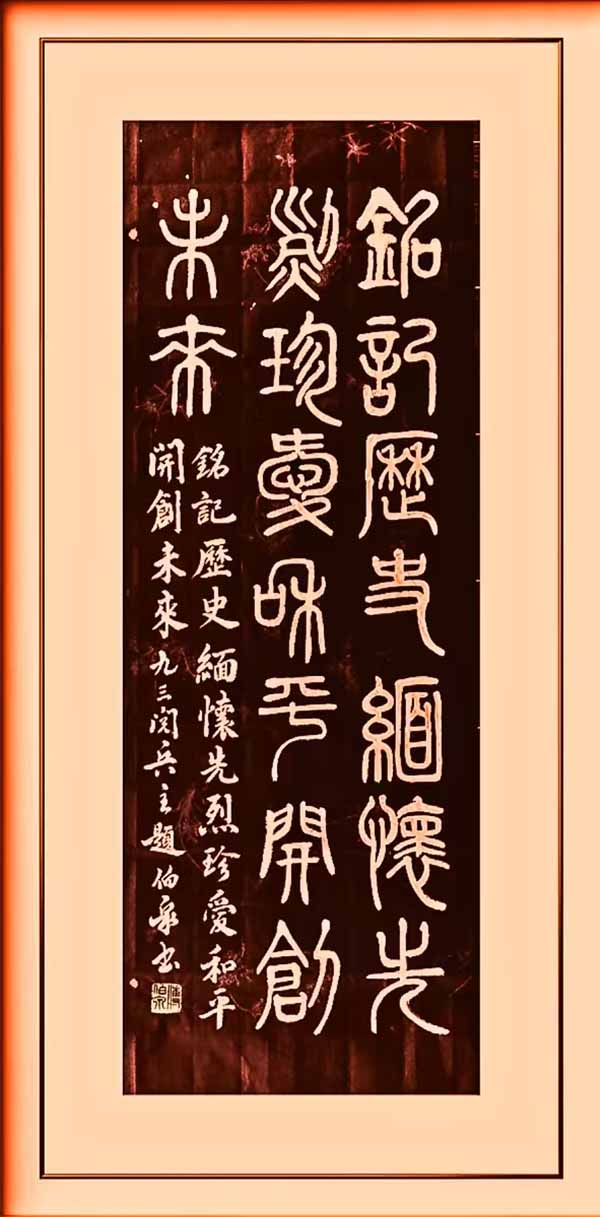 銘記歷史緬懷先
烈珍愛和平開創
未來
銘記歷史緬懷先烈珍愛和平
開創未來九三閱兵主題伯泉書